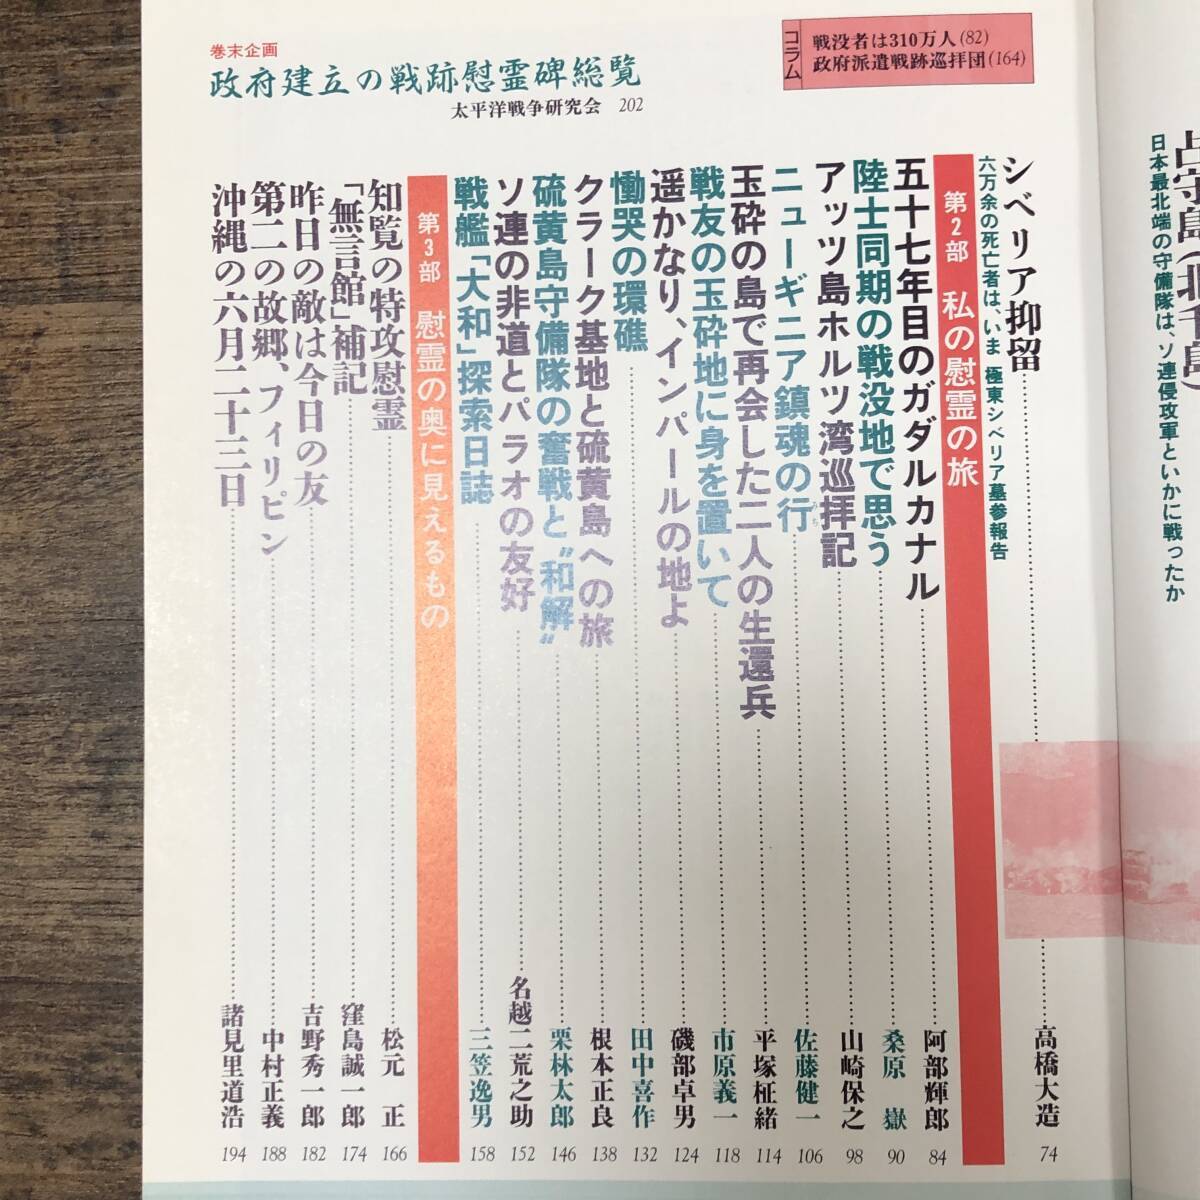 占守島(北千島)
日本最北端の守備隊は、ソ連侵攻軍といかに戦ったか
コラム
戦没者は310万人(82)
政府派遣戦跡巡拝団(164)
シベリア抑留
六万余の死亡者は、いま 極東シベリア墓参報告
高橋大造 74
第2部 私の慰霊の旅
五十七年目のガダルカナル 阿部輝郎 84
陸士同期の戦没地で思う 桑原 嶽 90
アッツ島ホルツ湾巡拝記 山崎保之 98
ニューギニア鎮魂の行 みち 佐藤健一 106
玉砕の島で再会した二人の生還兵 平塚柾緒 114
戦友の玉砕地に身を置いて 市原義一 118
遥かなり、インパールの地よ 磯部卓男 124
慟哭の環礁 田中喜作 132
クラーク基地と硫黄島への旅 根本正良 138
硫黄島守備隊の奮戦と〝和解〟 栗林太郎 146
ソ連の非道とパラオの友好 名越二荒之助 152
戦艦「大和」探索日誌 三笠逸男 158
第3部 慰霊の奥に見えるもの
知覧の特攻慰霊 松元 正 166
「無言館」補記 窪島誠一郎 174
昨日の敵は今日の友 吉野秀一郎 182
第二の故郷、フィリピン 中村正義 188
沖縄の六月二十三日 諸見里道浩 194
巻末企画
政府建立の戦跡慰霊碑総覧
太平洋戦争研究会 202